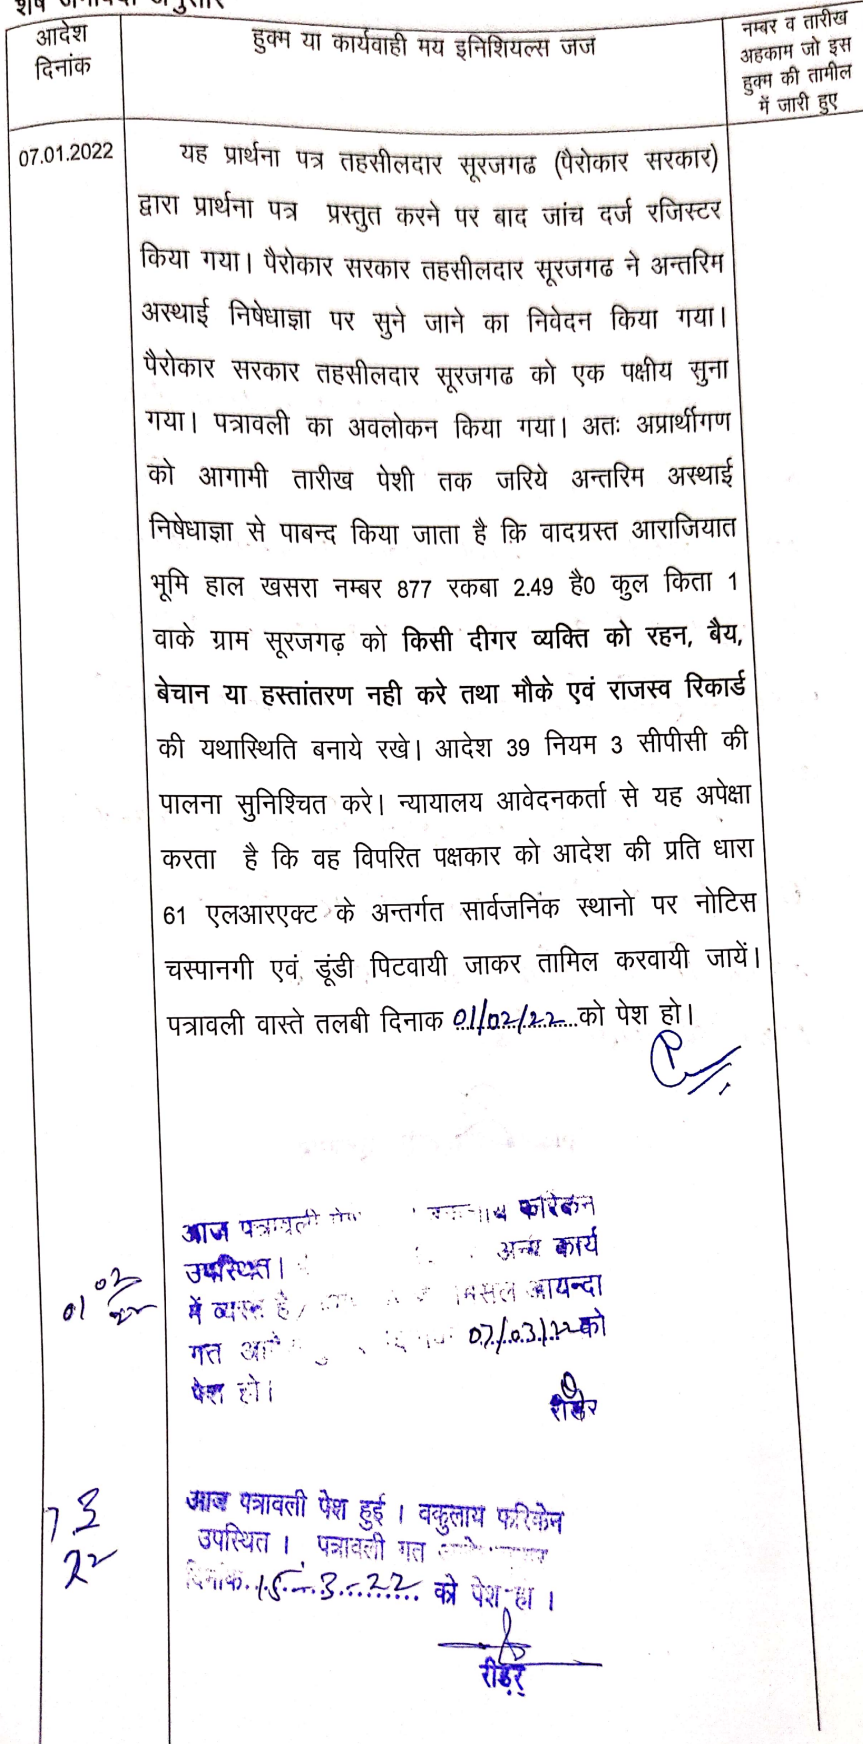 अनुसार
आदेश
दिनांक
हुक्म या कार्यवाही मय इनिशियल्स जज
नम्बर व तारीख
अहकाम जो इस
हुक्म की तामील
में जारी हुए
07.01.2022
यह प्रार्थना पत्र तहसीलदार सूरजगढ (पैरोकार सरकार)
द्वारा प्रार्थना पत्र प्रस्तुत करने पर बाद जांच दर्ज रजिस्टर
किया गया। पैरोकार सरकार तहसीलदार सूरजगढ ने अन्तरिम
अस्थाई निषेधाज्ञा पर सुने जाने का निवेदन किया गया।
पैरोकार सरकार तहसीलदार सूरजगढ को एक पक्षीय सुना
गया। पत्रावली का अवलोकन किया गया। अतः अप्रार्थीगण
को आगामी तारीख पेशी तक जरिये अन्तरिम अस्थाई
निषेधाज्ञा से पाबन्द किया जाता है कि वादग्रस्त आराजियात
भूमि हाल खसरा नम्बर 877 रकबा 2.49 है0 कुल किता 1
वाके ग्राम सूरजगढ़ को किसी दीगर व्यक्ति को रहन, बैय,
बेचान या हस्तांतरण नही करे तथा मौके एवं राजस्व रिकार्ड
की यथास्थिति बनाये रखे। आदेश 39 नियम 3 सीपीसी की
पालना सुनिश्चित करे। न्यायालय आवेदनकर्ता से यह अपेक्षा
करता है कि वह विपरित पक्षकार को आदेश की प्रति धारा
61 एलआरएक्ट के अन्तर्गत सार्वजनिक स्थानो पर नोटिस
चस्पानगी एवं डूंडी पिटवायी जाकर तामिल करवायी जायें।
पत्रावली वास्ते तलबी दिनाक 01/02/22 को पेश हो।
आज पत्रावली फरिकेन
उपस्थित। अन्य कार्य
01 02
22
में व्यस्त है आयन्दा
गत 07/03/22 को
पेश हो।
रीडर
7 3
22
आज पत्रावली पेश हुई । वकुलाय फरिकेन
उपस्थित । पत्रावली गत
दिनांक 15-3-22 को पेश हो ।
रीडर